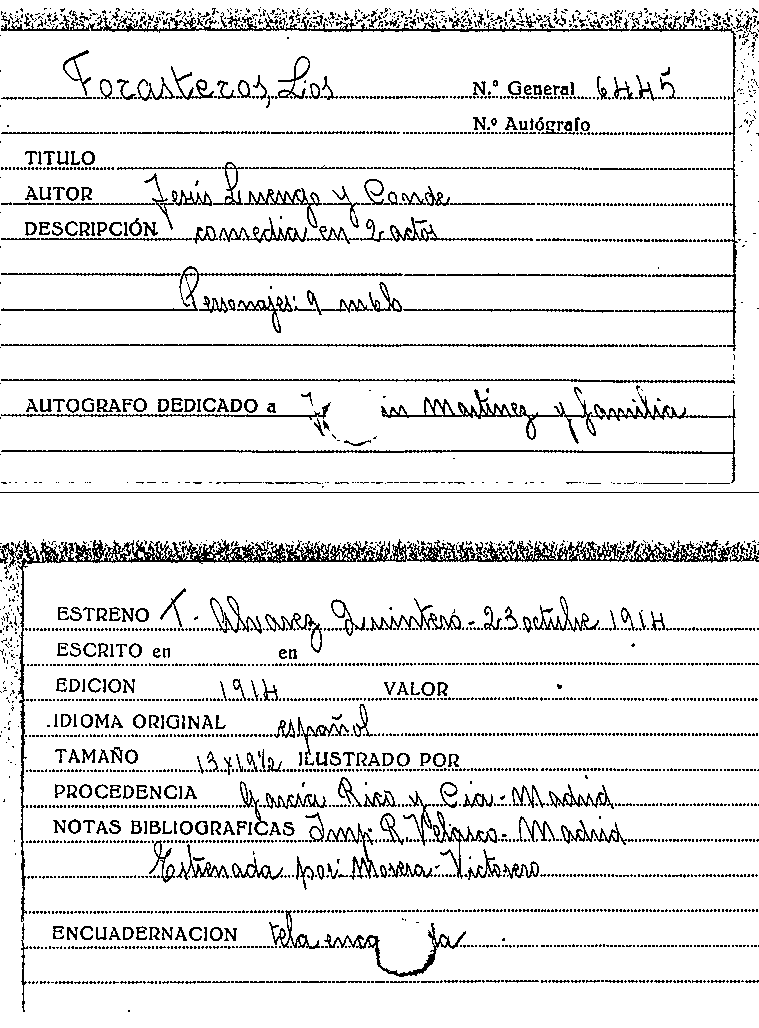 Forasteros, Los
N.º General 6445
N.º Autógrafo
TITULO
AUTOR Jesús Luengo y Conde
DESCRIPCIÓN comedia en 2 actos
Personajes: 9 m 6 h
AUTOGRAFO DEDICADO a in Martinez y familia
ESTRENO T. Alvarez Quintero - 23 octubre 1914
ESCRITO en en
EDICION 1914 VALOR
IDIOMA ORIGINAL español
TAMAÑO 13x19½ ILUSTRADO POR
PROCEDENCIA García Rico y Cia - Madrid
NOTAS BIBLIOGRAFICAS Imp. R. Velasco - Madrid
Estrenada por: Mosera - Victorero
ENCUADERNACION tela